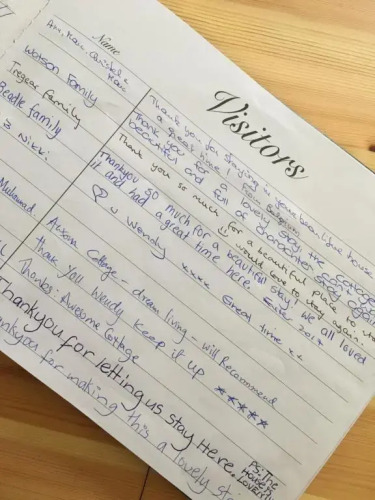 Visitors
Name
Ann, Kari,
Kari
Watson Family
Tregear Family
Beadle family
& Nikki
Muhamad.
Thank you for staying in your beautiful house
a great time! From Belgium
Thank you for a lovely stay, the cottage
beautiful and full of character
Thank you so much for a beautiful place to
would love to stay again.
Thankyou so much for a beautiful stay! We all loved
it and had a great time here. 2017
♡ u Wendy xxxx Great time xx
Cottage - dream living - will Recommend
thank you Wendy keep it up ★★★★★
Thanks - Awesome Cottage
Thankyou for letting us stay Here.
Thankyou for making this a lovely
PS. The
House is
Lovely